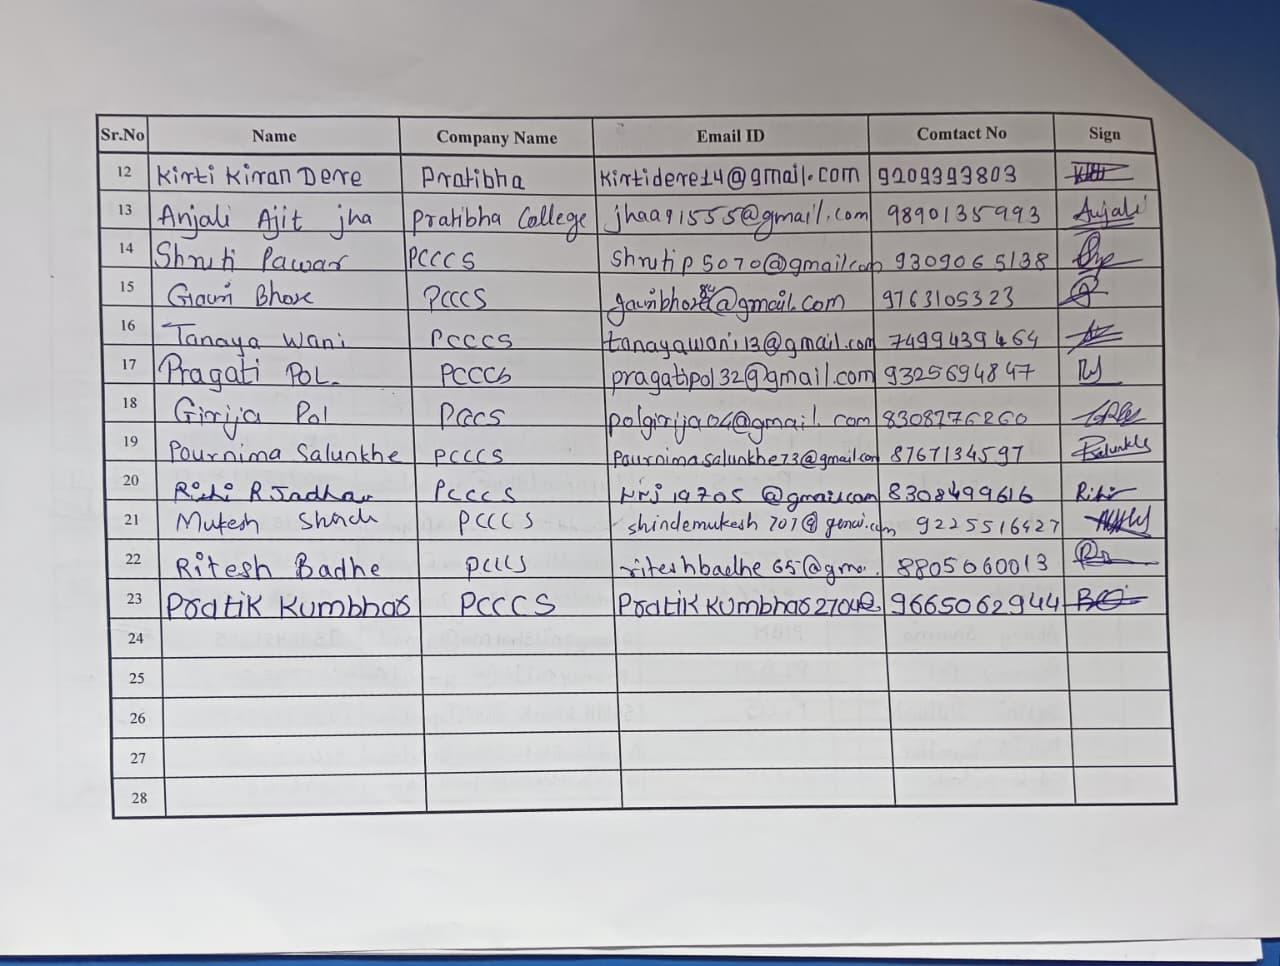 Sr.No Name Company Name Email ID Comtact No Sign
12 Kirti Kiran Dere Pratibha Kirtidere14@gmail.com 9209393803
13 Anjali Ajit jha Pratibha College jhaa91555@gmail.com 9890135993 Anjali
14 Shruti Pawar PCCCS shrutip5070@gmail.com 9309065138
15 Gauri Bhore PCCCS 9763105323
16 Tanaya Wani PCCCS tanayawani13@gmail.com 7499439464
17 Pragati Pol PCCCS pragatipol32@gmail.com 9325694847
18 Girija Pol PCCCS polgirija04@gmail.com 8308776260
19 Pournima Salunkhe PCCCS Pournimasalunkhe73@gmail.com 8767134597 PSalunkhe
20 Rishi R Jadhav PCCCS @gmail.com 8308499616
21 Mukesh PCCCS shindemukesh707@gmai.com 9225516427
22 Ritesh Badhe PCCCS riteshbadhe65@gma. 8805060013
23 Pratik Kumbhar PCCCS 9665062944
24
25
26
27
28